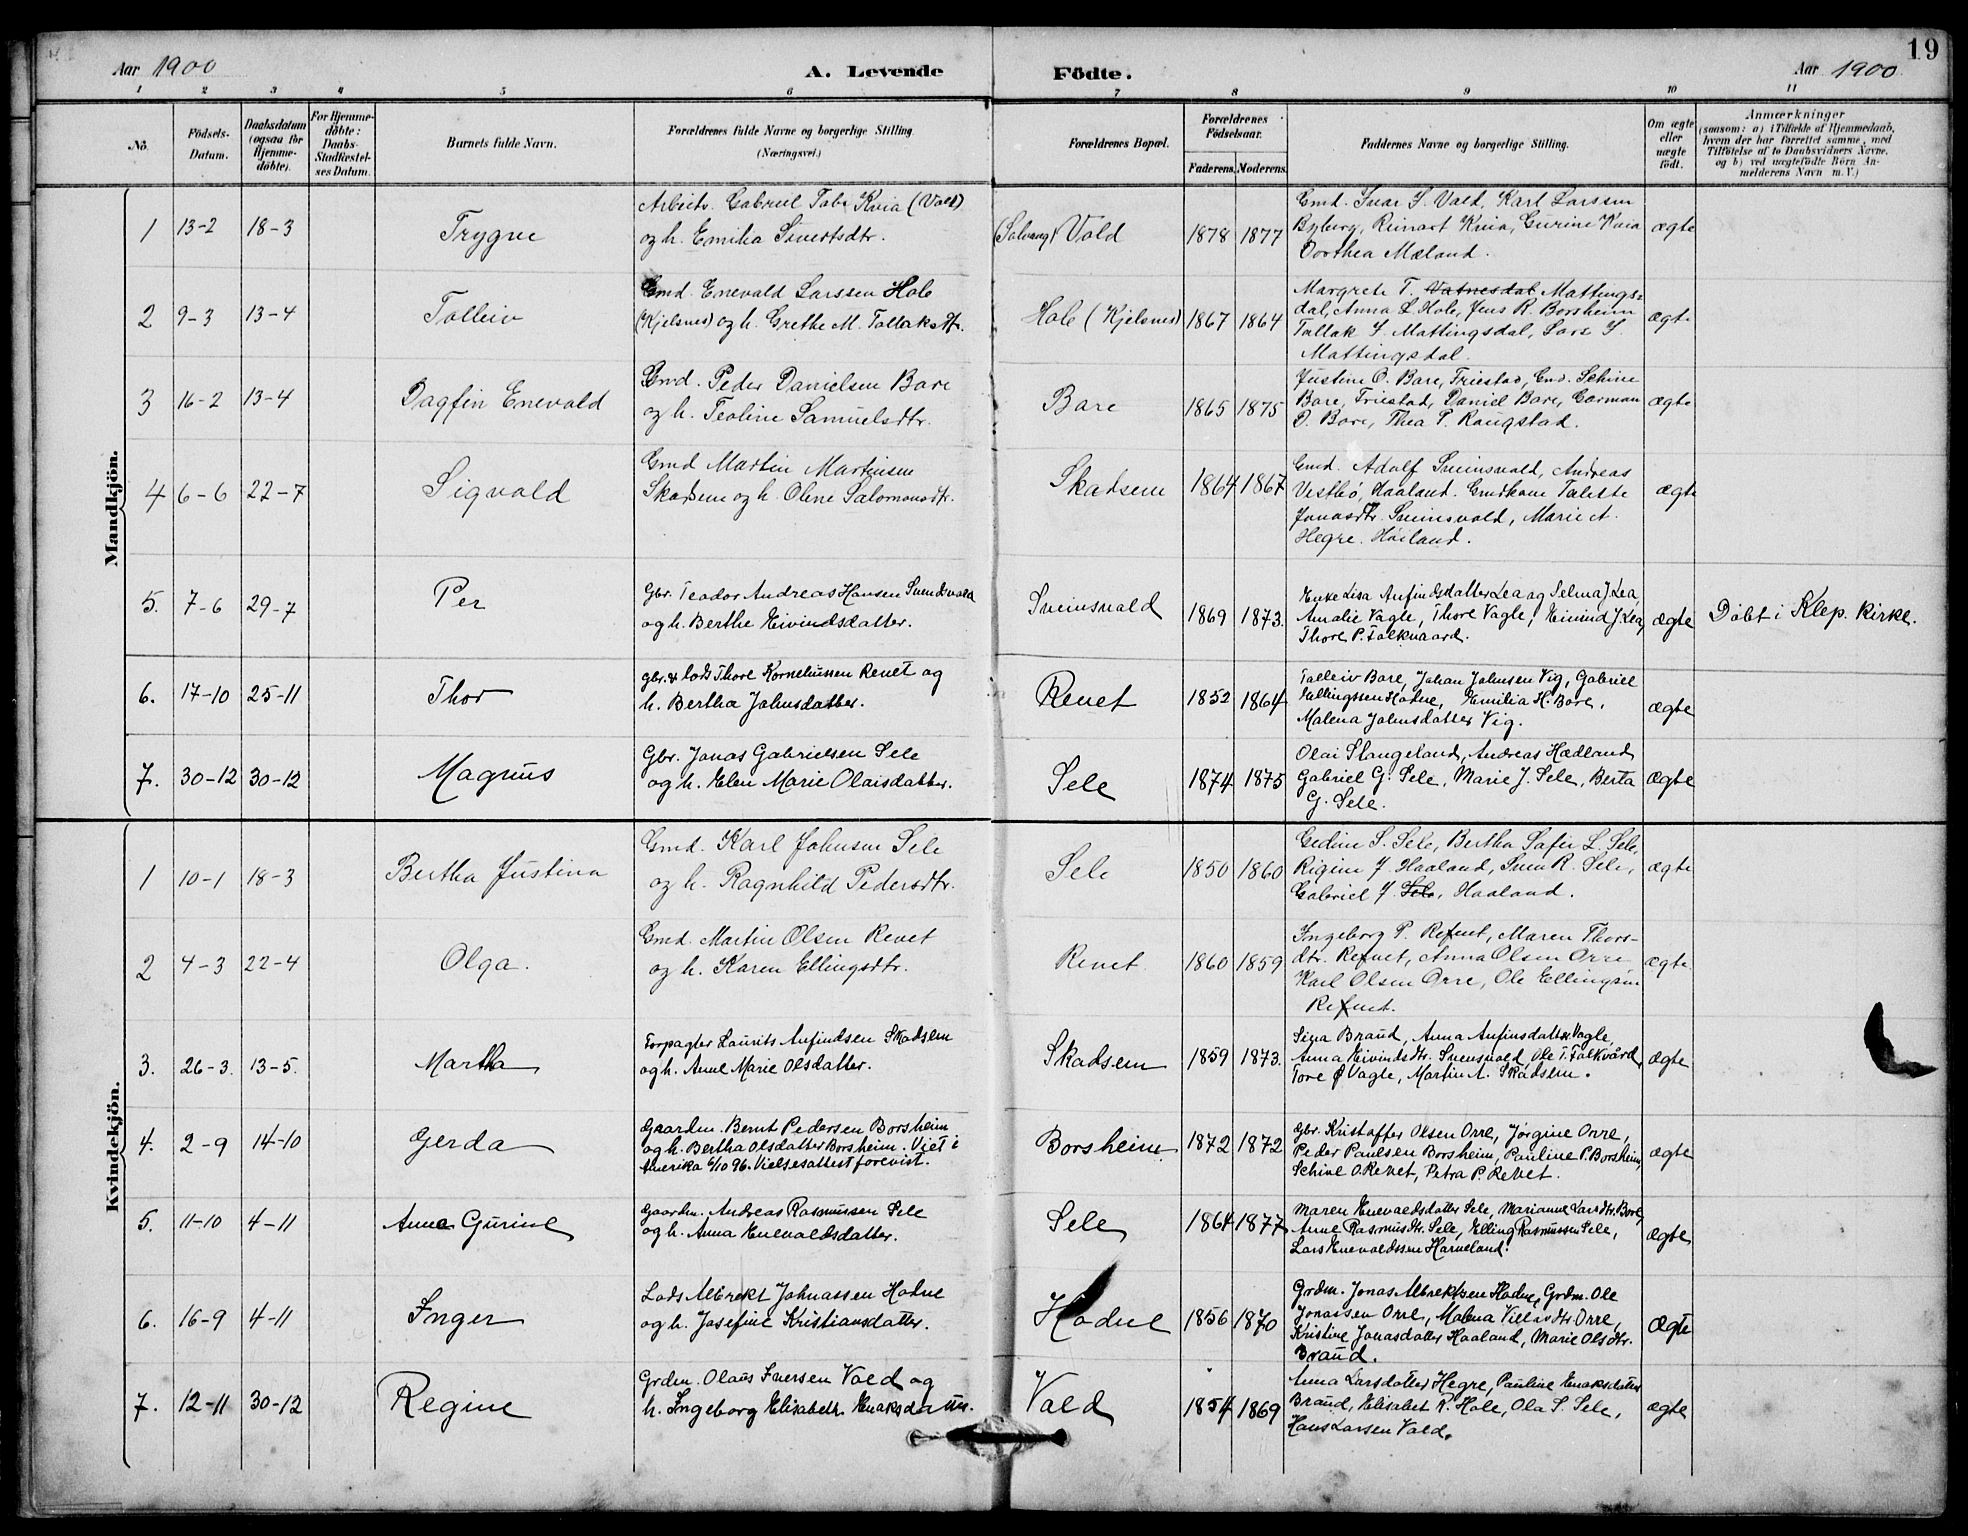 19
Aar 1900
A. Levende Födte.
Aar 1900
1 2 3 4 5 6 7 8 9 10 11
No.
Födsels-Datum.
Daabsdatum (ogsaa for Hjemme-döbte).
For Hjemme-döbte: Daabs-Stadfæstel-ses Datum.
Barnets fulde Navn.
Forældrenes fulde Navne og borgerlige Stilling. (Næringsvei.)
Forældrenes Bopæl.
Forældrenes Födselsaar.
Faderens. Moderens.
Faddernes Navne og borgerlige Stilling.
Om ægte eller uægte födt.
Anmærkninger
(saasom: a) i Tilfælde af Hjemmedaab, hvem der har forrettet samme, med Tilföielse af to Daabsvidners Navne, og b) ved uægtefödte Börn Anmelderens Navn m. V.)
Mandkjön.
1 13-2 18-3 Trygve
Arbeidr. Gabriel Tobi Kvia (Vold)
og h. Emilia Sivertsdtr.
(Solvang) Vold 1878 1877
Gmd. Ivar S. Vold, Karl Larssen
Byberg, Reinart Kvia, Gurine Kvia
Dorthea Mæland.
ægte
2 9-3 13-4 Tolleiv
Gmd. Enevald Larssen Hole
(Kjelsnes) og h. Grethe M. Tollaksdtr.
Hole (Kjelsnes) 1867 1864
Margrete T. Vatnesdal Mattings-
dal, Anna L Hole, Jens R. Borsheim
Tallak S. Mattingsdal, Lars S.
Mattingsdal.
ægte
3 16-2 13-4 Dagfin Enevald
Gmd. Peder Danielsen Bore
og h. Teoline Samuelsdtr.
Bore 1865 1875
Justine O. Bore, Friestad, Gmd. Schine
Bore, Friestad, Daniel Bore, Gorman
D. Bore, Thea P. Raugstad.
ægte
4 6-6 22-7 Sigvald
Gmd Martin Martinsen
Skadsem og h. Olene Salomonsdtr.
Skadsem 1864 1867
Gmd. Adolf Sveinsvold, Andreas
Vestbø, Haaland. Gmdkone Talette
Jonasdtr. Sveinsvold, Marie A.
Hegre. Höiland.
ægte
5. 7-6 29-7 Per
Gbr. Teodor Andreas Hansen Svendsvold
og h. Berthe Eivindsdatter.
Sveinsvold 1869 1873.
Enke Lisa Anfindsdatter Lea og Selma J. Lea
Amalie Vagle, Thore Vagle, Eivind J. Lea,
Thore P. Folkvaard.
ægte
Döbt i Klep. Kirke.
6. 17-10 25-11 Thor
gbr. & lods Thore Korneliussen Revet og
h. Bertha Johnsdatter.
Revet 1852 1864
Tolleiv Bore, Johan Johnsen Vig, Gabriel
Ellingssen Hodne, Emilia H. Bore,
Malena Johnsdatter Vig.
ægte
7. 30-12 30-12 Magnus
Gbr. Jonas Gabrielsen Sele
og h. Elen Marie Olaisdatter.
Sele 1874 1875
Olai Stangeland, Andreas Hædland
Gabriel G. Sele, Marie J. Sele, Berta
G. Sele.
ægte
Kvindekjön.
1 10-1 18-3 Bertha Justina
Gmd. Karl Johnsen Sele
og h. Ragnhild Pedersdtr.
Sele 1850 1860
Gedine S. Sele, Bertha Sofie L. Sele,
Rigine J Haaland, Svein R. Sele,
Gabriel J. Sele, Haaland.
ægte
2 4-3 22-4 Olga.
Gmd. Martin Olsen Revet
og h. Karen Ellingsdtr.
Revet 1860 1859
Ingeborg P. Refvet, Maren Thors-
dtr. Refvet, Anna Olsen Orre
Karl Olsen Orre, Ole Ellingsen
Refvet.
ægte
3. 26-3. 13-5. Martha
Forpagter Laurits Anfindsen Skadsem
og h. Anne Marie Olsdatter.
Skadsem 1859 1873.
Sina Braud, Anna Anfinsdatter Vagle,
Anna Eivindsdtr. Svensvold, Ole T. Folkvård,
Tore Ø Vagle, Martin A. Skadsem.
ægte
4. 2-9 14-10 Gerda
Gaardm. Bernt Pedersen Borsheim
og h. Bertha Olsdatter Borsheim. Viet i
Amerika 6/10 96. Vielsesattest forevist.
Borsheim 1872 1872
Gbr. Kristoffer Olsen Orre, Jørgine Orre,
Peder Paulsen Borsheim, Pauline P. Borsheim,
Schine O. Revet, Petra P. Revet.
ægte
5. 11-10 4-11 Anna Gurine
Gaardm. Andreas Rasmussen Sele
og h. Anna Enevaldsdatter.
Sele 1864 1877
Maren Enevaldsdatter Sele, Marianne Larsdtr. Bore,
Anne Rasmusdtr. Sele, Elling Rasmussen Sele,
Lars Enevaldssen Harveland.
ægte
6. 16-9 4-11 Inger
Lods Albrekt Johnassen Hodne
og h. Josefine Kristiansdatter.
Hodne 1856 1870
Grdm. Jonas Albrektsen Hodne, Grdm. Ole
Jonassen Orre, Malena Villasdtr. Orre,
Kristine Jonasdatter Haaland, Marie Olsdtr.
Braud.
ægte
7. 12-11 30-12 Regine
Grdm. Olaus Iversen Vold og
h. Ingeborg Elisabeth Enoksdatter.
Vold 1854 1869
Anna Larsdatter Hegre, Pauline Enoksdatter
Braud, Elisabet R. Hole, Ola S. Sele,
Hans Larsen Vold.
ægte